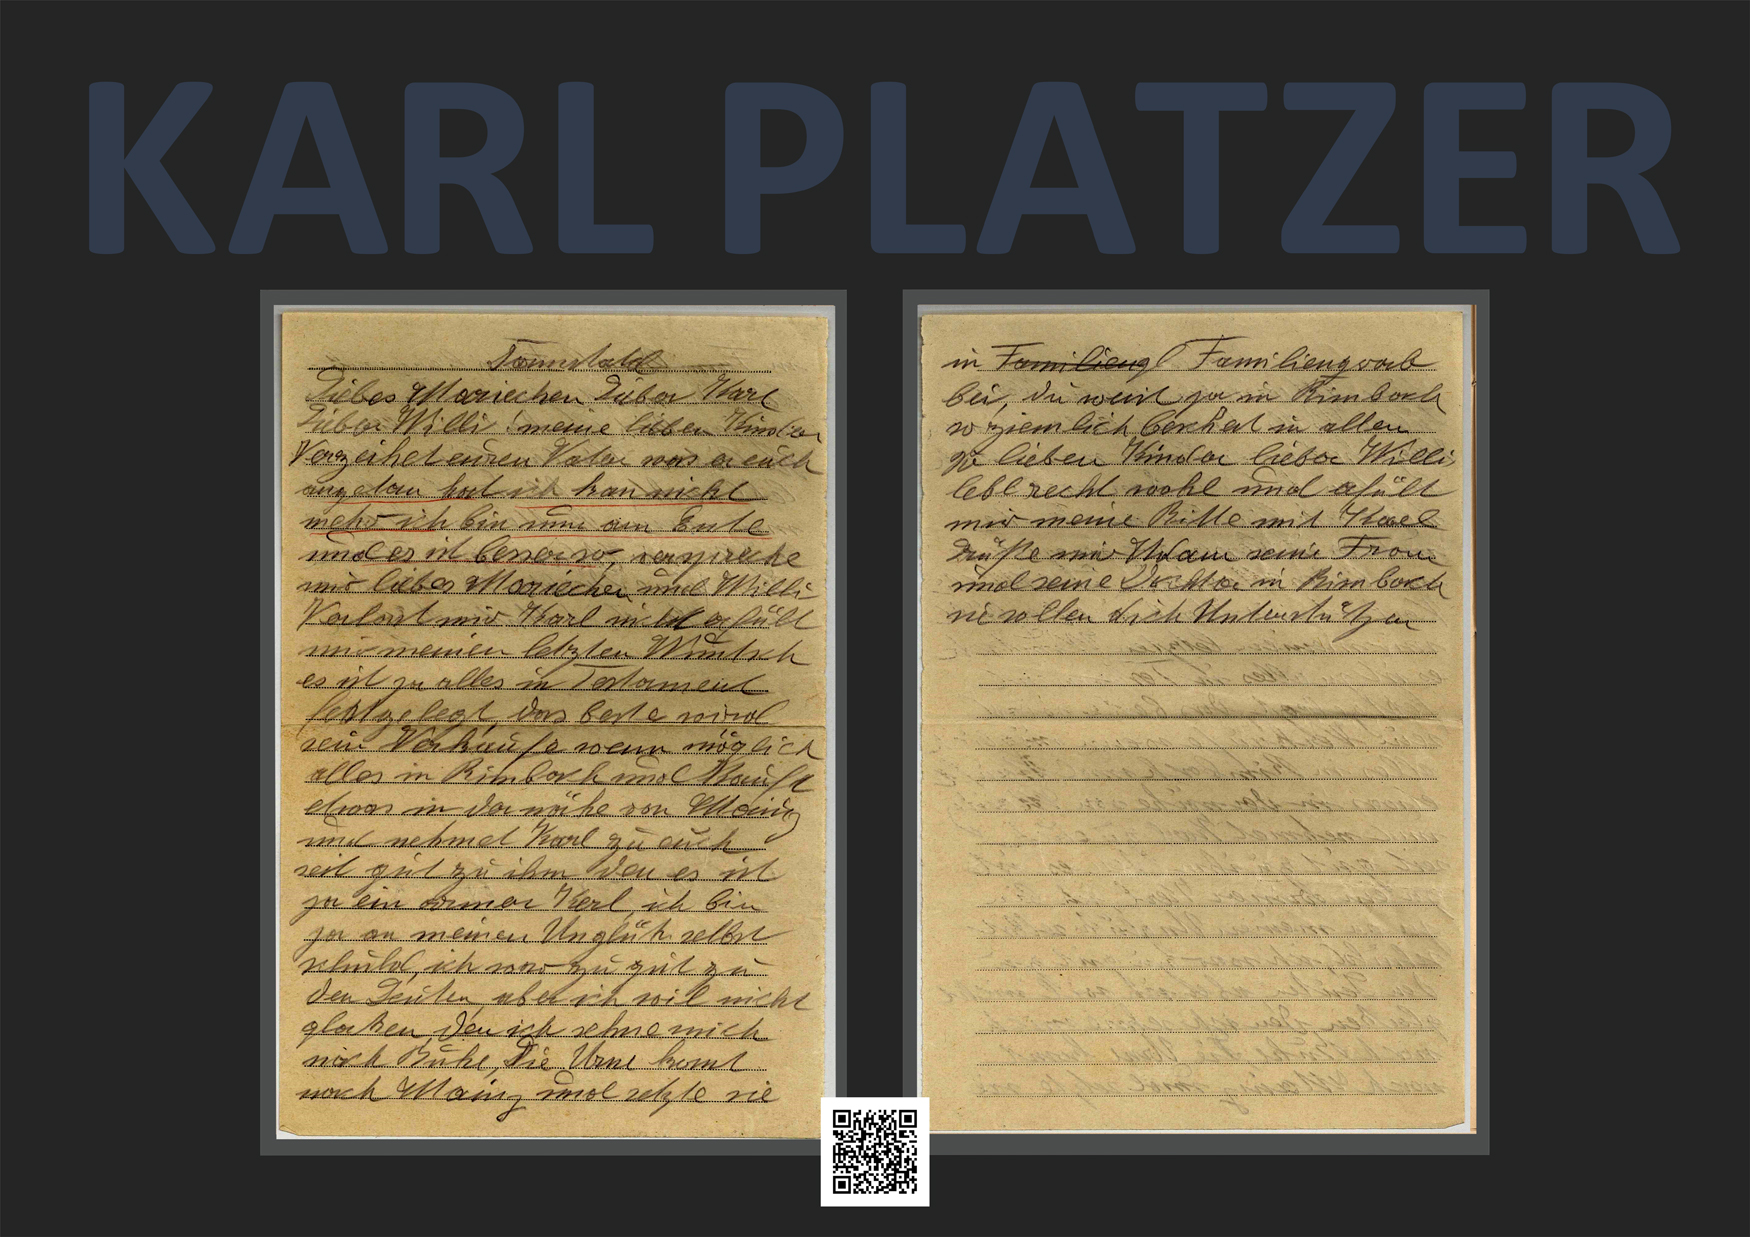 KARL PLATZER
Liebes Mariechen Lieber Karl
Lieber Willi! meine lieben Kinder
Verzeihet euren Vater was er euch
angetan hat ich kan nicht
mehr ich bin nun am Ente
und es ist besser so, verspreche
mir liebes Mariechen und Willi
Verlast mir Karl nicht erfüllt
mir meinen letzten Wuntsch
es ist ja alles in Testament
festgelegt, das beste wird
sein Verkaufe wenn möglich
alles in Rimbach und Kauft
etwas in der nähe von Mainz
und nehmet Karl zu euch
seit gut zu ihm den es ist
ja ein armer Kerl, ich bin
ja an meinen Unglük selbst
schuld, ich war zu gut zu
den Leuten, aber ich will nicht
den ich sehne mich
nach Ruhe, Die Urne komt
nach Mainz und setzte sie
in Familieng Familiengrab
bei, du weist ja in Rimbach
so ziemlich bescheit in allen
so lieben Kinder lieber Willi
lebt recht wohl und erfüllt
mir meine Bitte mit Karl
Grüße mir Adam seine Frau
und seine Tochter in Rimbach
sie sollen dich Unterstützen